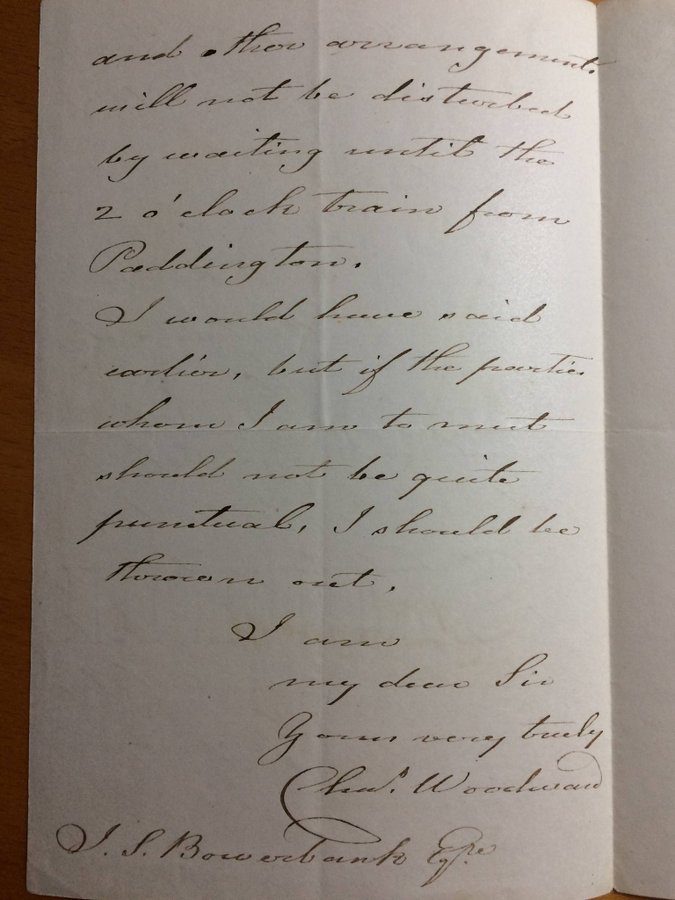 and other arrangements
will not be disturbed
by waiting until the
2 o'clock train from
Paddington.
I would have said
earlier, but if the parties
whom I am to meet
should not be quite
punctual, I should be
thrown out.
I am
my dear Sir
Yours very truly
Chas. Woodward
J. S. Bowerbank Esqre